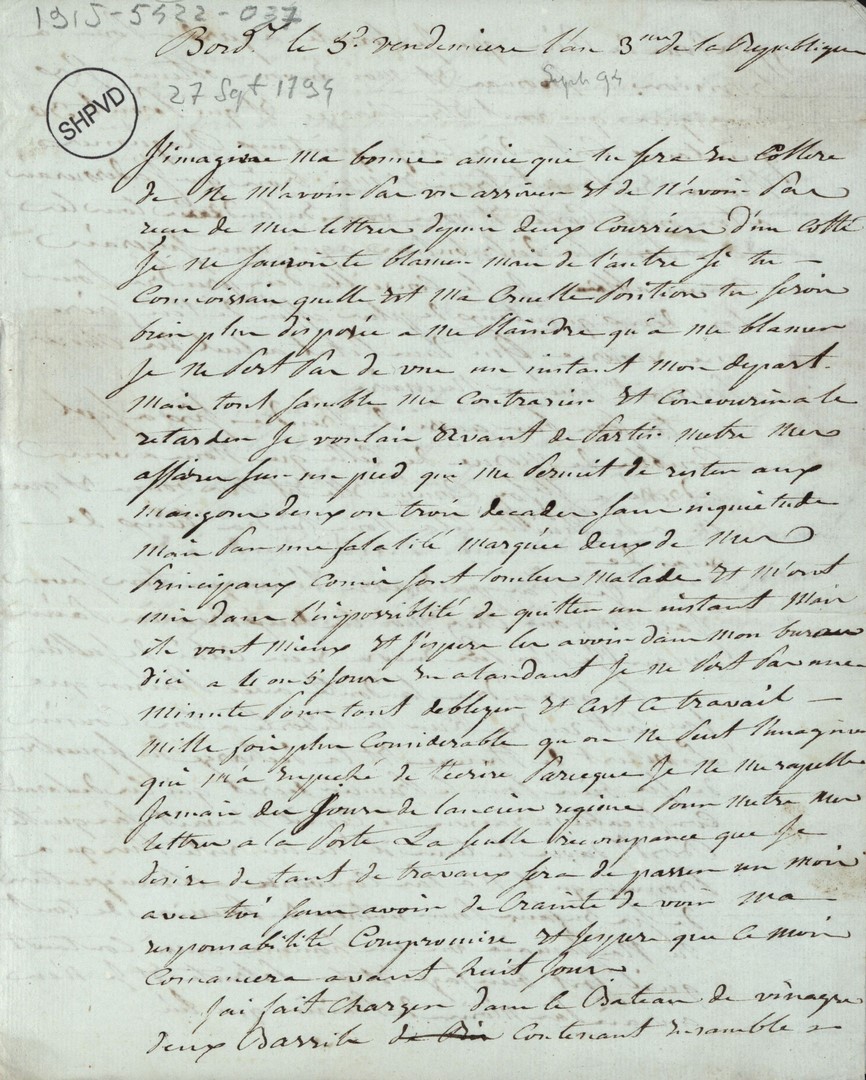 1915-5422-037
Bord.x le 5.e vendemiere l'an 3me de la Republique
27 Sept 1794 Sept 94
SHPVD
J'imagine ma bonne amie que tu sera en collere
de ne m'avoir pas vu arriver et de n'avoir pas
recu de mes lettres depuis deux courriers d'un cotté
Je ne saurois te blamer mais de l'autre si tu
connoissais quelle est ma cruelle position tu serois
bien plus disposée a me plaindre qu'a me blamer
Je ne pert pas de vue un instant mon depart
mais tout samble me contrarier et concourir a le
retarder Je voulais avant de partir metre mes
affaires sur un pied qui me permit de rester aux
mangons deux ou trois decades sans inquietude
mais par une fatalité marquée deux de mes
principaux comis sont tombes malade et m'ont
mis dans l'impossiblité de quitter un instant mais
ils vont mieux et J'espere les avoir dans mon bureau
dici a 4 ou 5 Jours en alandant Je ne pert pas une
minute pour tout deblayer et cest ce travail
mille fois plus considerable qu'on ne peut l'imaginer
qui m'a empeché de t'ecrire parceque Je ne me rapelle
Jamais des Jours de lancien regime pour metre mes
lettres a la poste La seulle recompance que Je
desire de tant de travaux sera de passer un mois
avec toi sans avoir de crainte de voir ma
responsabilité compromise et Jespere que ce mois
comancera avant huit Jours
J'ai fait charger dans le Bateau de vinagre
deux Barrils contenant ensamble